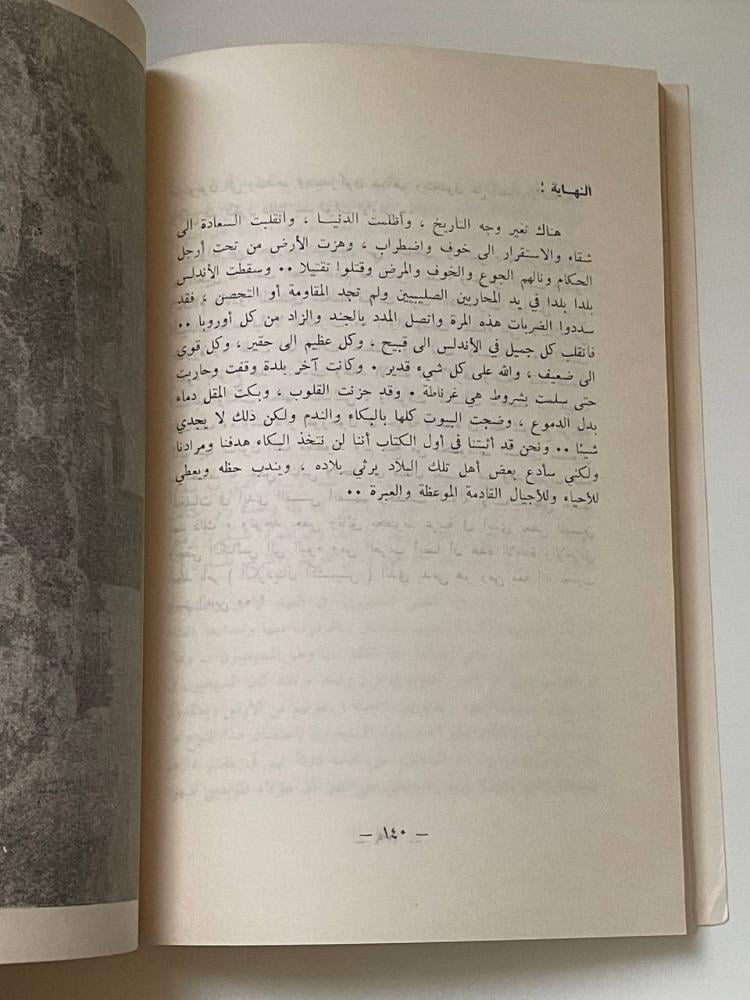 النهاية :
هناك تغير وجه التاريخ ، وأظلمت الدنيا ، وانقلبت السعادة الى
شقاء والاستقرار الى خوف واضطراب ، وهزت الأرض من تحت أرجل
الحكام ونالهم الجوع والخوف والمرض وقتلوا تقتيلا .. وسقطت الأندلس
بلدا بلدا في يد المحاربين الصليبيين ولم تجد المقاومة أو التحصن ، فقد
سددوا الضربات هذه المرة واتصل المدد بالجند والزاد من كل أوروبا ..
فانقلب كل جميل في الأندلس الى قبيح ، وكل عظيم الى حقير ، وكل قوي
الى ضعيف ، والله على كل شيء قدير . وكانت آخر بلدة وقفت وحاربت
حتى سلمت بشروط هي غرناطة . وقد حزنت القلوب ، وبكت المقل دماء
بدل الدموع ، وضجت البيوت كلها بالبكاء والندم ولكن ذلك لا يجدي
شيئا .. ونحن قد أثبتنا في أول الكتاب أننا لن نتخذ البكاء هدفنا ومرادنا
ولكني سأدع بعض أهل تلك البلاد يرثي بلاده ، ويندب حظه ويعطي
للأحياء وللأجيال القادمة الموعظة والعبرة ..
— ١٤٠ —